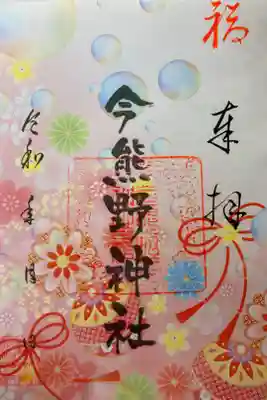 福
奉拝
今熊野神社
令和 年 月 日